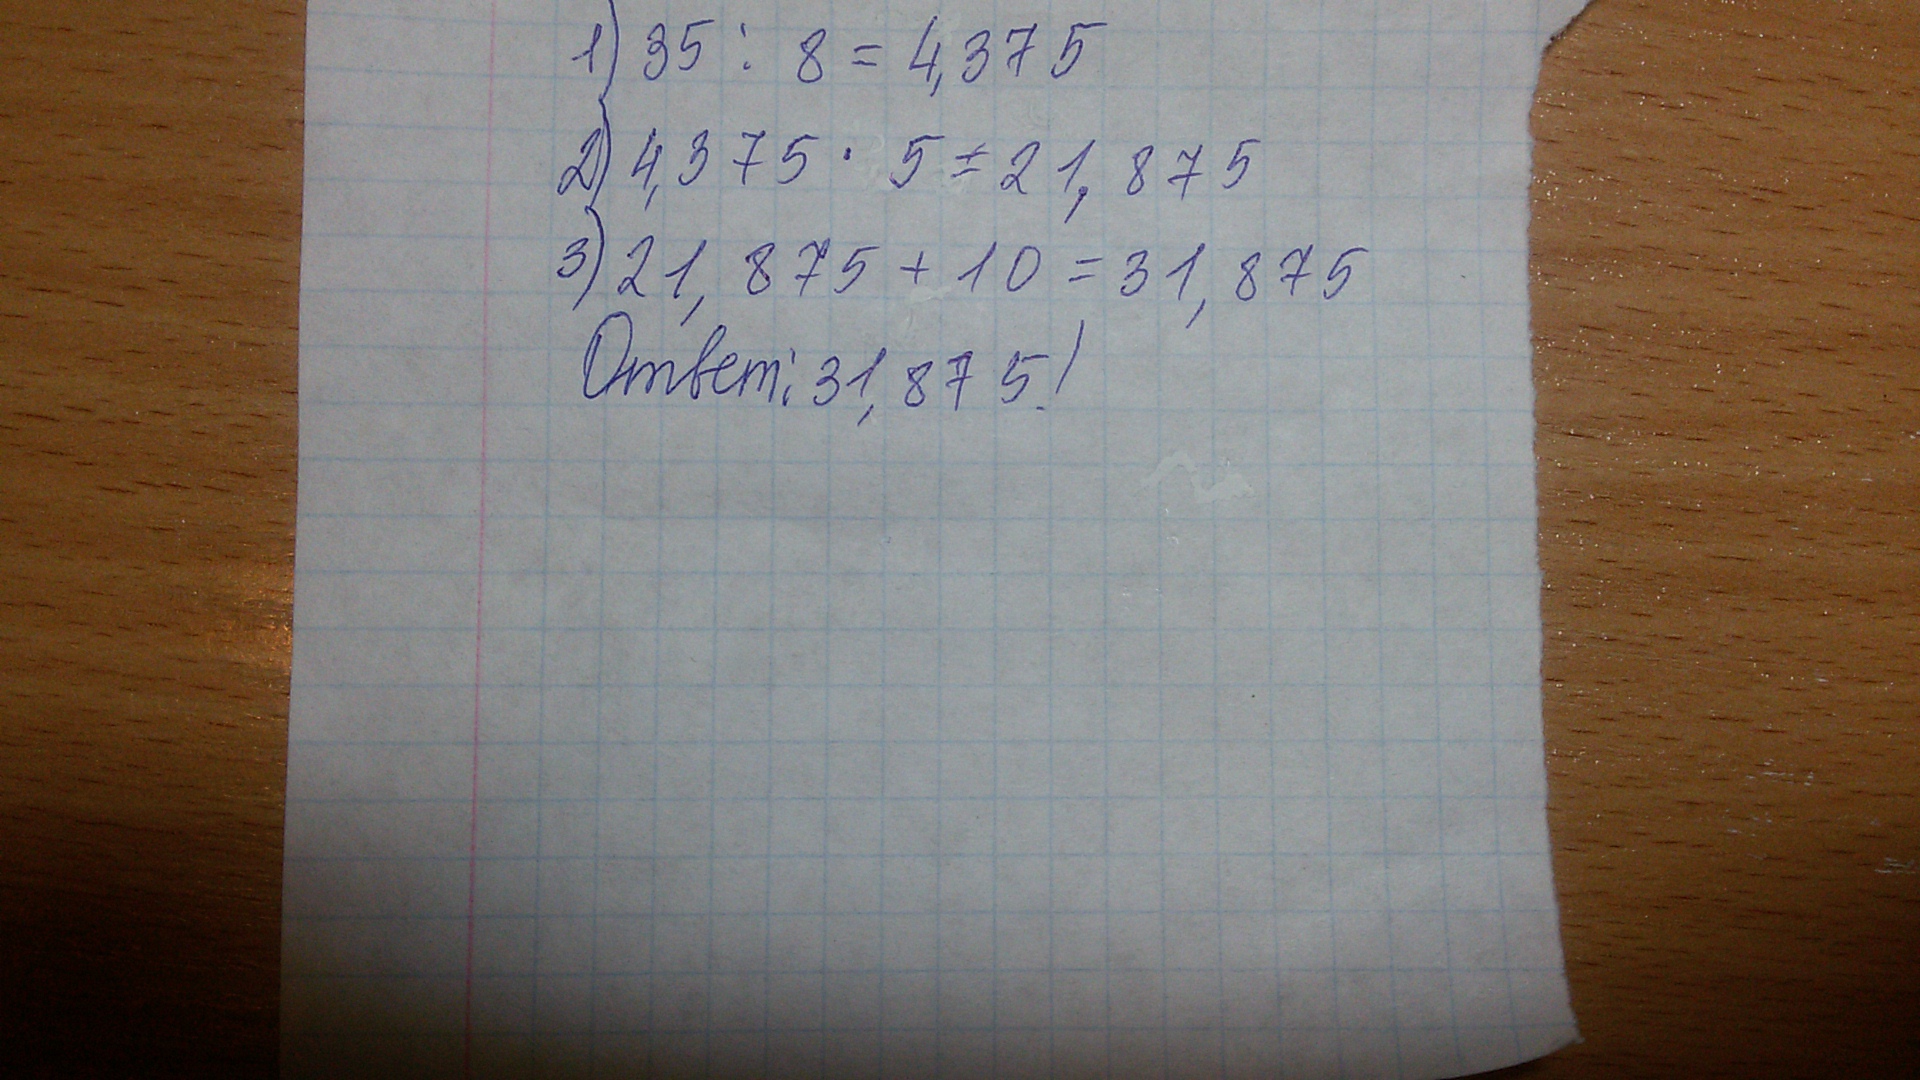 1) 35 : 8 = 4,375
2) 4,375 · 5 = 21,875
3) 21,875 + 10 = 31,875
Ответ: 31,875!